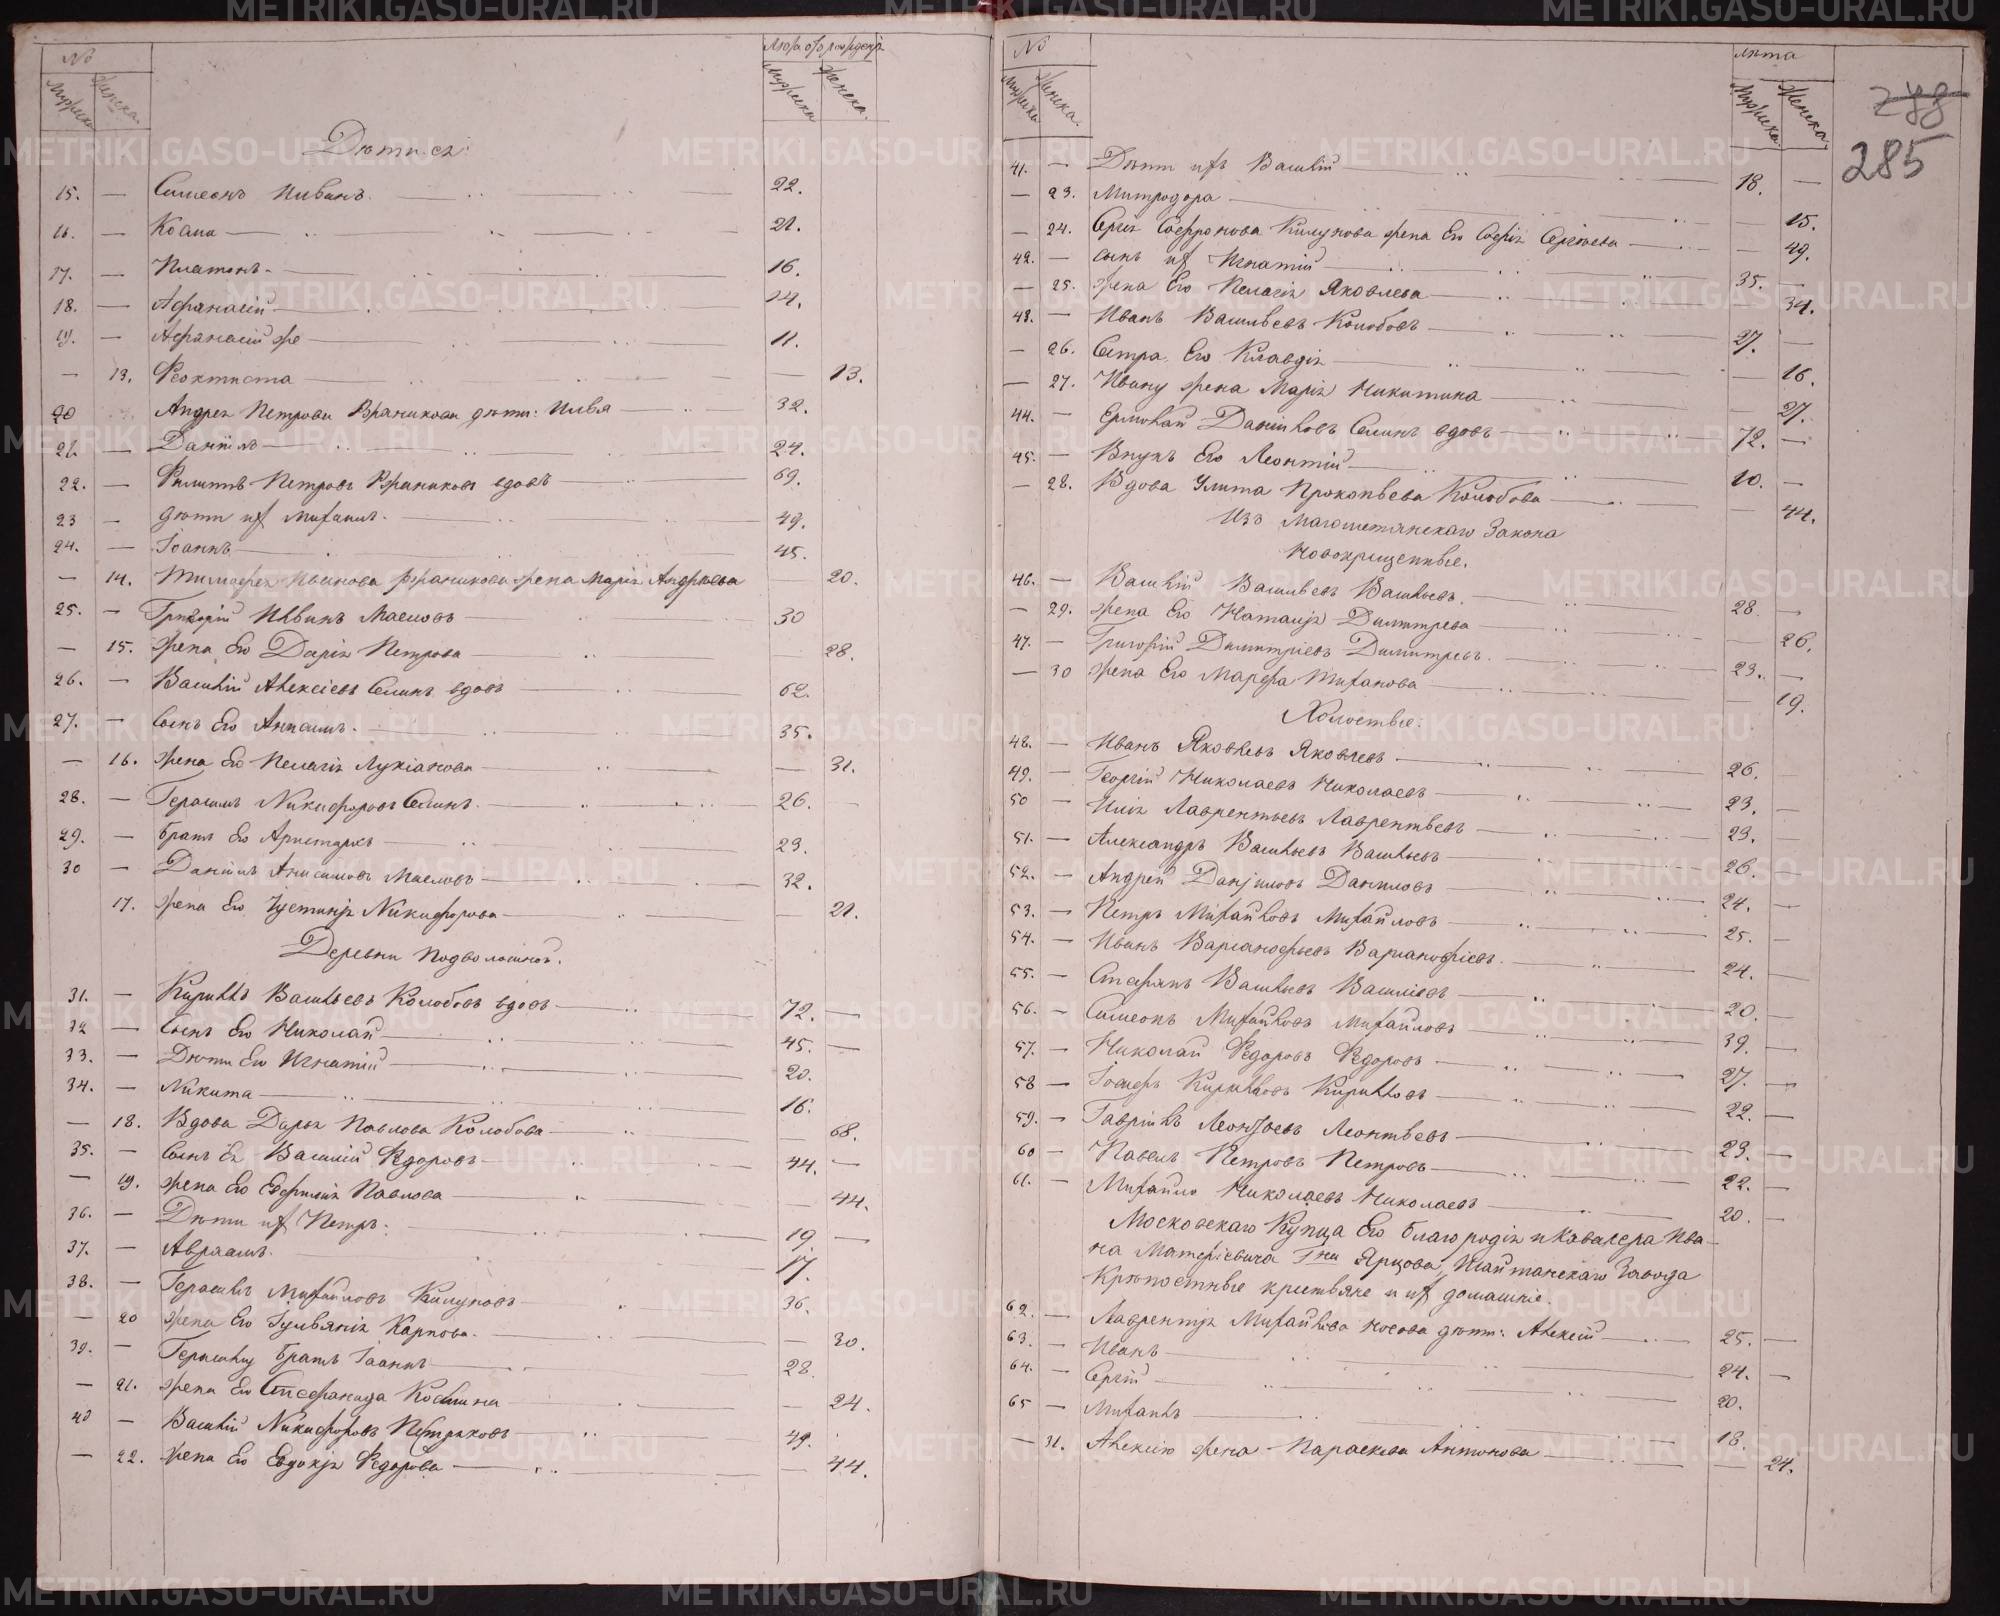 №
Лѣта отъ рожденія
Мужска
Женска.
Мужска
Женска.
Дѣти ея:
15. — Симеонъ Ивановъ. 22.
16. — Косма 21.
17. — Платонъ 16.
18. — Афанасій 14.
19. — Афанасій же 11.
— 13. Феоктиста — 13.
20 Андрея Петрова дѣти: Илья 32.
21. — Даніилъ 24.
22. — Филиппъ Петровъ вдовъ 69.
23 — дѣти их Михаилъ 49.
24. — Іоаннъ 45.
— 14. Тимофея Иванова жена Марія Андреева 20.
25. — Григорій Ивановъ Масловъ 30
— 15. Жена Его Дарія Петрова — 28.
26. — Василій Алексіевъ Семинъ вдовъ 62.
27. — Сынъ Его 35.
— 16. Жена Его Пелагія Лукіанова — 31.
28. — Герасимъ Никифоровъ Семинъ 26.
29. — братъ Его Аристархъ 23.
30 — Даніилъ Анисимовъ Масловъ 32.
17. Жена Его Іустинія Никифорова — 21.
Деревни Подволошной.
31. — Кириллъ Васильевъ Колобовъ вдовъ 72. —
32 — Сынъ Его Николай 45. —
33. — Дѣти Его Игнатій 20.
34. — Никита 16.
— 18. Вдова Дарья Павлова Колобова — 68.
35. — Сынъ Ея Василій Федоровъ 44. —
— 19. Жена Его Евфимія Павлова — 44.
36. — Дѣти их Петръ 19 —
37. — Авраамъ. 17.
38. — Герасимъ Михайловъ 36.
— 20 Жена Его Іуліянія Карпова. — 30.
39. — Герасиму братъ Іоаннъ 28.
— 21. Жена Его Стефанида Космина — 24.
40 — Василій Никифоровъ Петряковъ 49.
— 22. Жена Его Евдокія Федорова — 44.
№
лѣта
Мужска
Женска.
Мужска
Женска.
288
285
41. — Дѣти ихъ Василій 18. —
— 23. Митродора 15.
— 24. Сергія Софронова жена Его Софія Сергѣева — 49.
42. — сынъ их Игнатій 35. —
— 25. Жена Его Пелагія Яковлева 34.
43. — Иванъ Васильевъ Колобовъ 27. —
— 26. Сестра Его Клавдія — 16.
— 27. Ивану жена Марія Никитина — 27.
44. — Ермолай Даниловъ Семинъ вдовъ 72. —
45. — Внукъ Его Леонтій 10. —
— 28. Вдова Улита Прокопьева Колобова — 44.
Изъ Магометанскаго Закона
Новокрещенные.
46. — Василій Васильевъ Васильевъ. 28 —
— 29. Жена Его Наталія Димитрева — 26.
47. — Григорій Димитріевъ Димитревъ. 23. —
— 30 Жена Его Марфа — 19.
Холостые:
48. — Иванъ Яковлевъ Яковлевъ 26. —
49. — Георгій Николаевъ Николаевъ 23. —
50 — Илія Лаврентьевъ Лаврентьевъ 23. —
51. — Александръ Васильевъ Васильевъ 26. —
52. — Андрей Даниловъ Даниловъ 24. —
53. — Петръ Михайловъ Михайловъ 25. —
54. — Иванъ Варѳаноѳьевъ Варѳаноѳіевъ. 24. —
55. — Стефанъ Васильевъ Василіевъ 20. —
56. — Симеонъ Михайловъ Михайловъ 39. —
57. — Николай Федоровъ Федоровъ 27. —
58 — Іосифъ Кирилловъ Кирилловъ 22. —
59. — Гаврілъ Леонтьевъ Леонтьевъ 23. —
60 — Павелъ Петровъ Петровъ 22. —
61. — Михайло Николаевъ Николаевъ 20. —
Московскаго Купца Его благородія и Кавалера Ива-
на Матѳіевича Гна Ярцова, Шайтанскаго Завода
Крѣпостные крестьяне и их домашніе.
62. — Лаврентія Михайлова Носова дѣти: Алексій 25. —
63. — Иванъ 24. —
64. — Сергій 20.
65 — Михаилъ 18.
— 31. Алексію жена Параскева Антонова — 24.